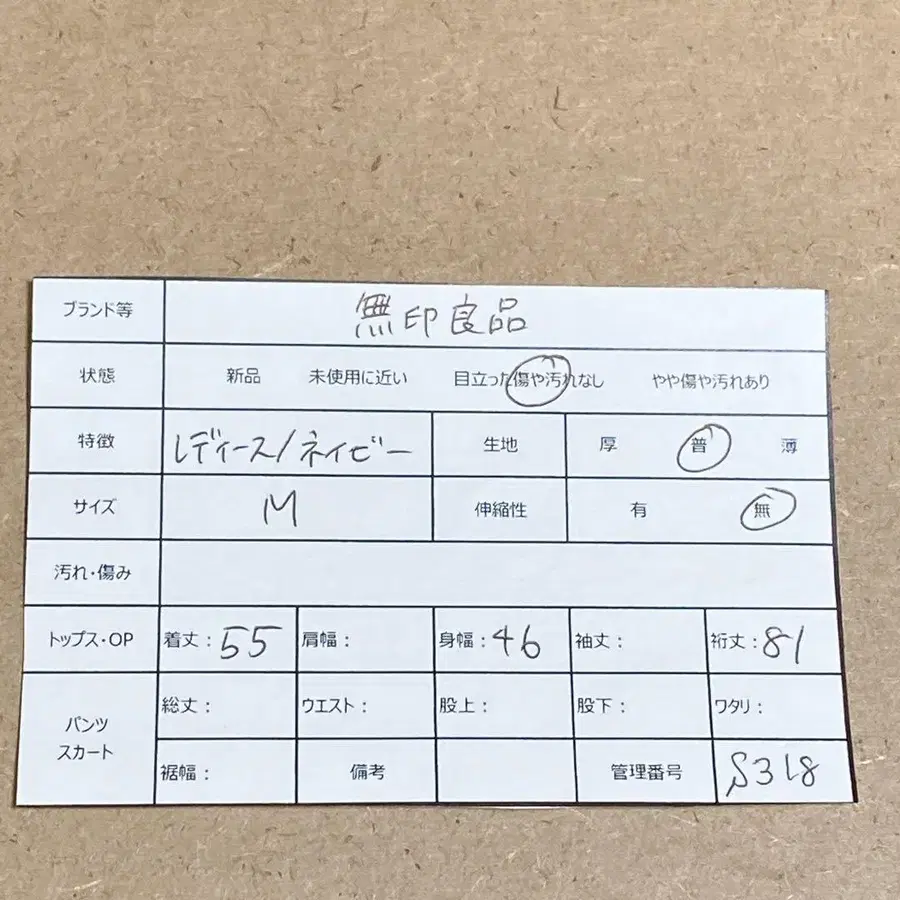 ブランド等 無印良品
状態 新品 未使用に近い 目立った傷や汚れなし やや傷や汚れあり
特徴 レディース/ネイビー 生地 厚 普 薄
サイズ M 伸縮性 有 無
汚れ・傷み
トップス・OP 着丈：55 肩幅： 身幅：46 袖丈： 裄丈：81
パンツ
スカート
総丈： ウエスト： 股上： 股下： ワタリ：
裾幅： 備考 管理番号 S318